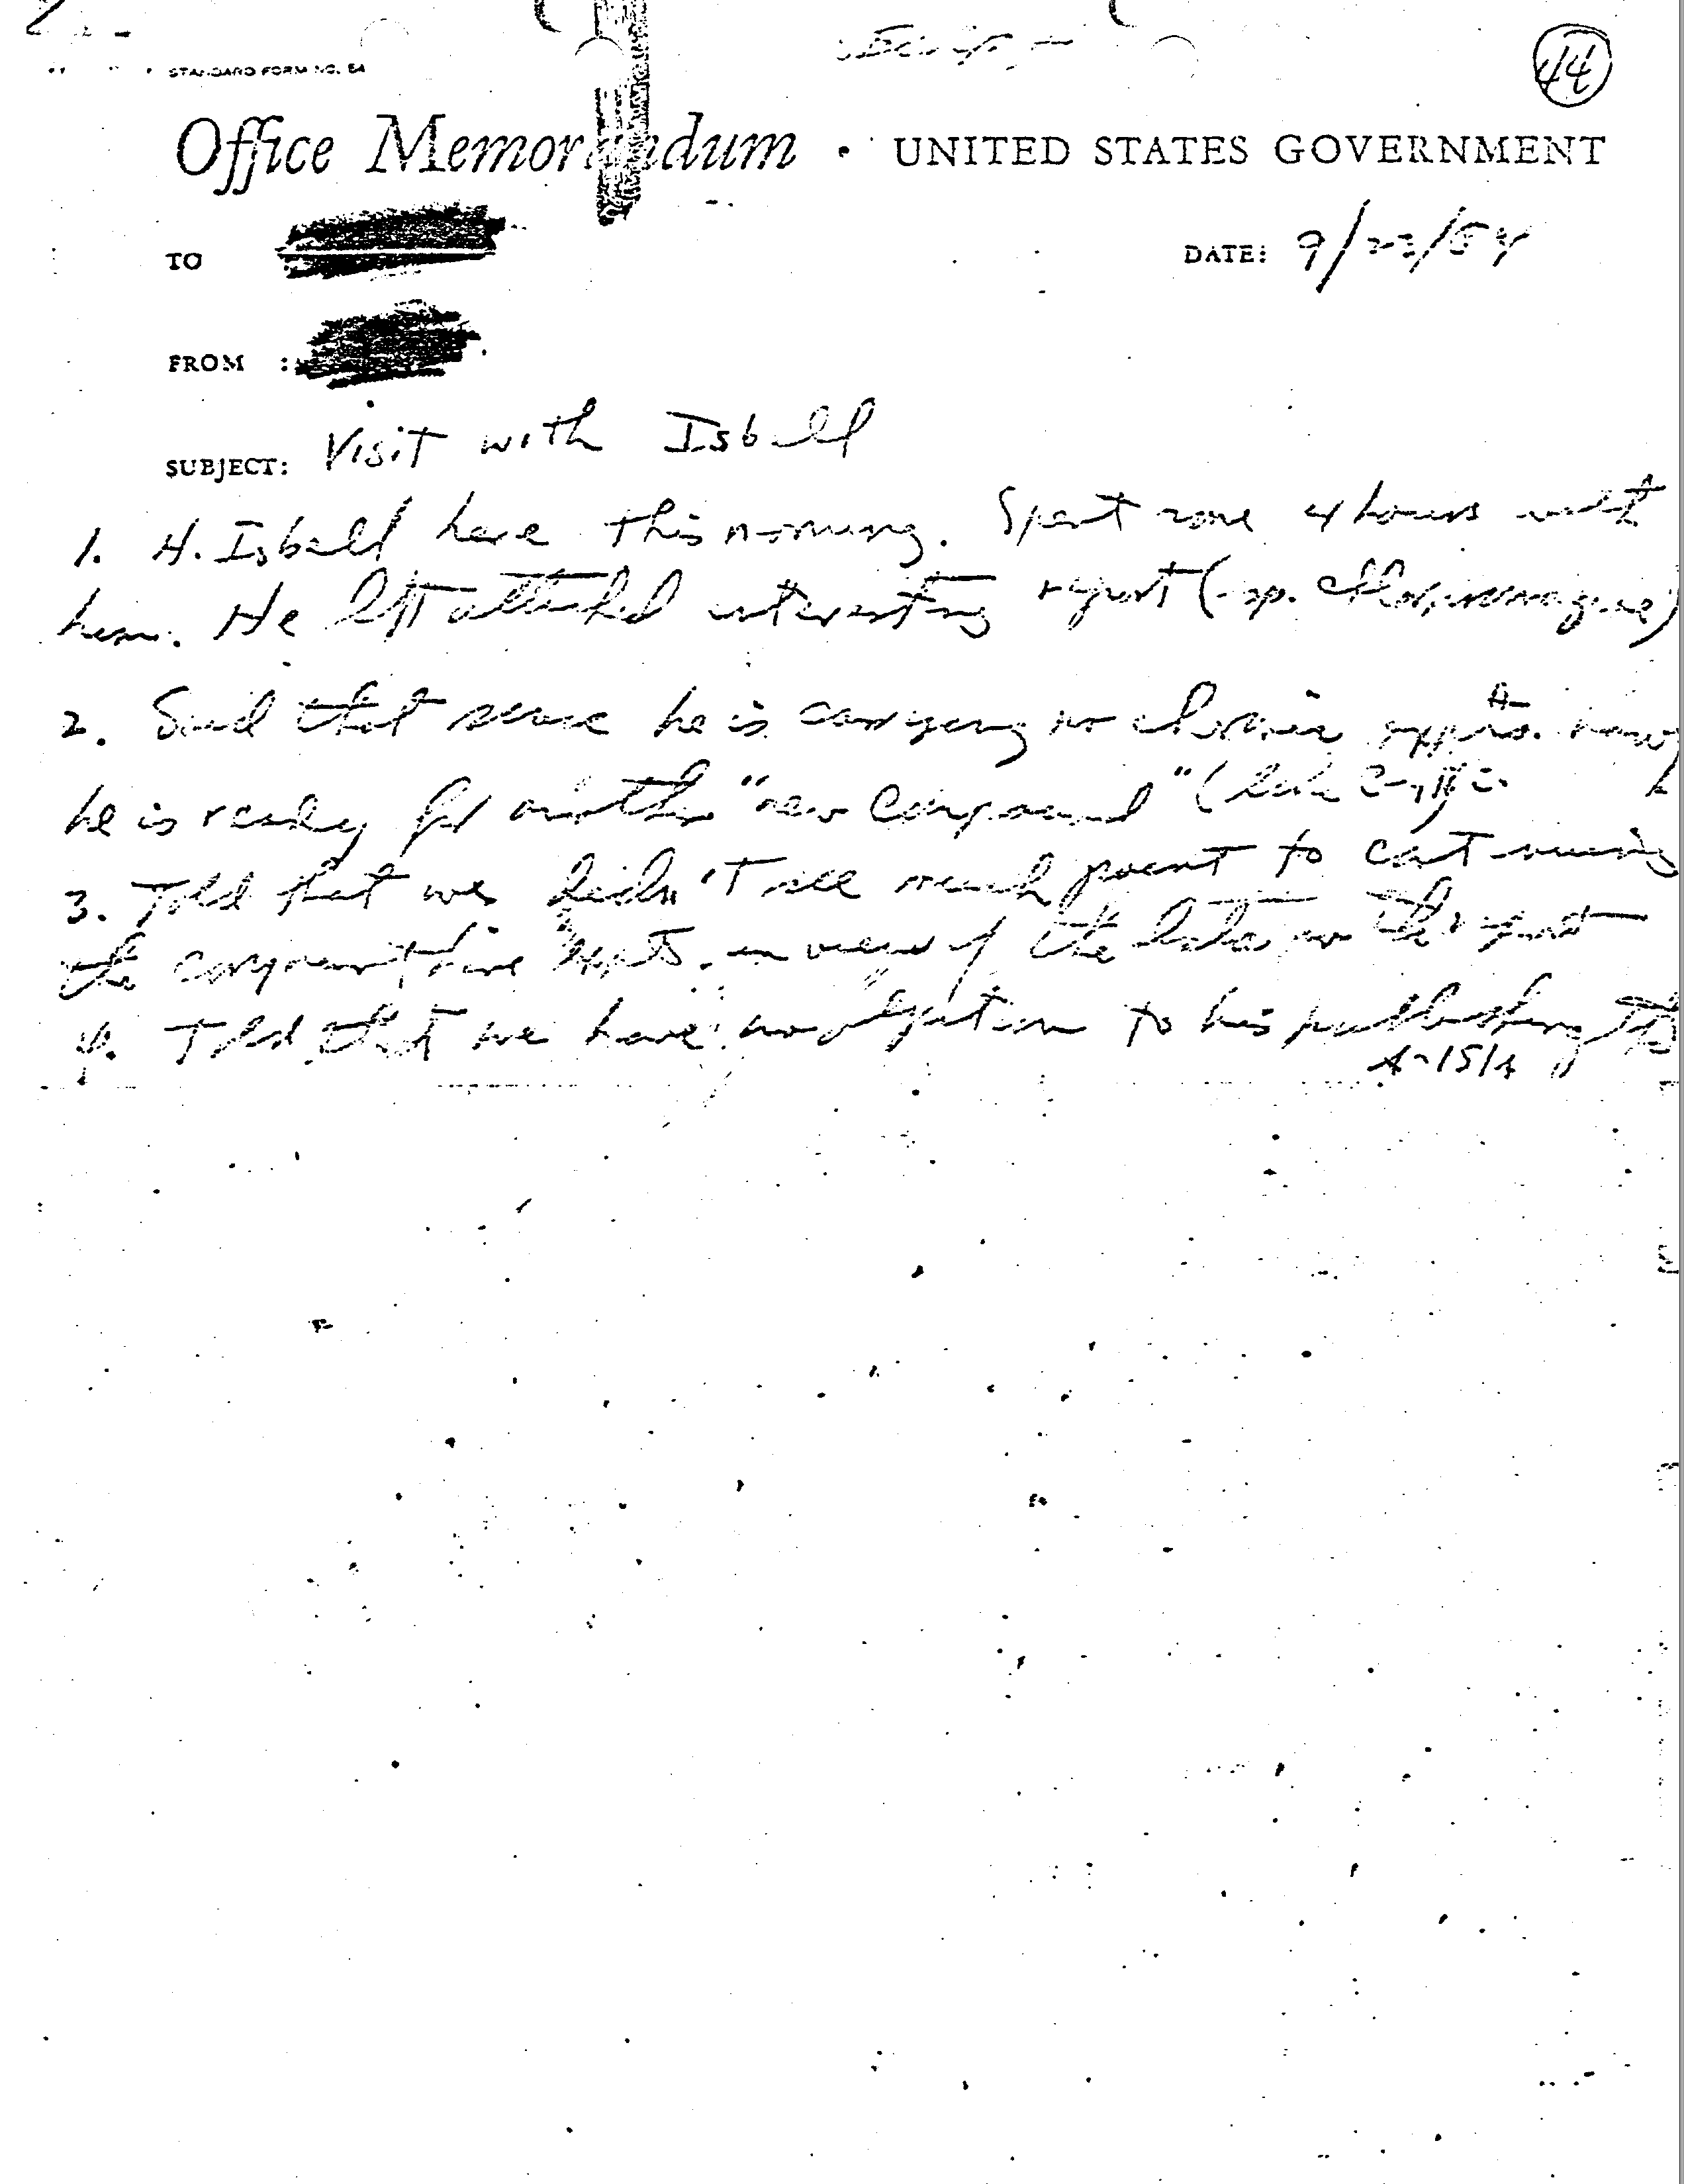 STANDARD FORM NO. 64
44
Office Memorandum • UNITED STATES GOVERNMENT
TO
DATE: 9/23/54
FROM :
SUBJECT: Visit with Isbell
1. H. Isbell here this morning. Spent some 4 hours with
him. He left attached interesting report (esp. chlorpromazine)
2. Said that since he is carrying no chronic expts. now
he is ready for another "new compound" (like
3. Told that we didn't see much point to continuing
the comparative expts. in view of the data in the report
4. Told that we have no objection to his publishing
A-15/4